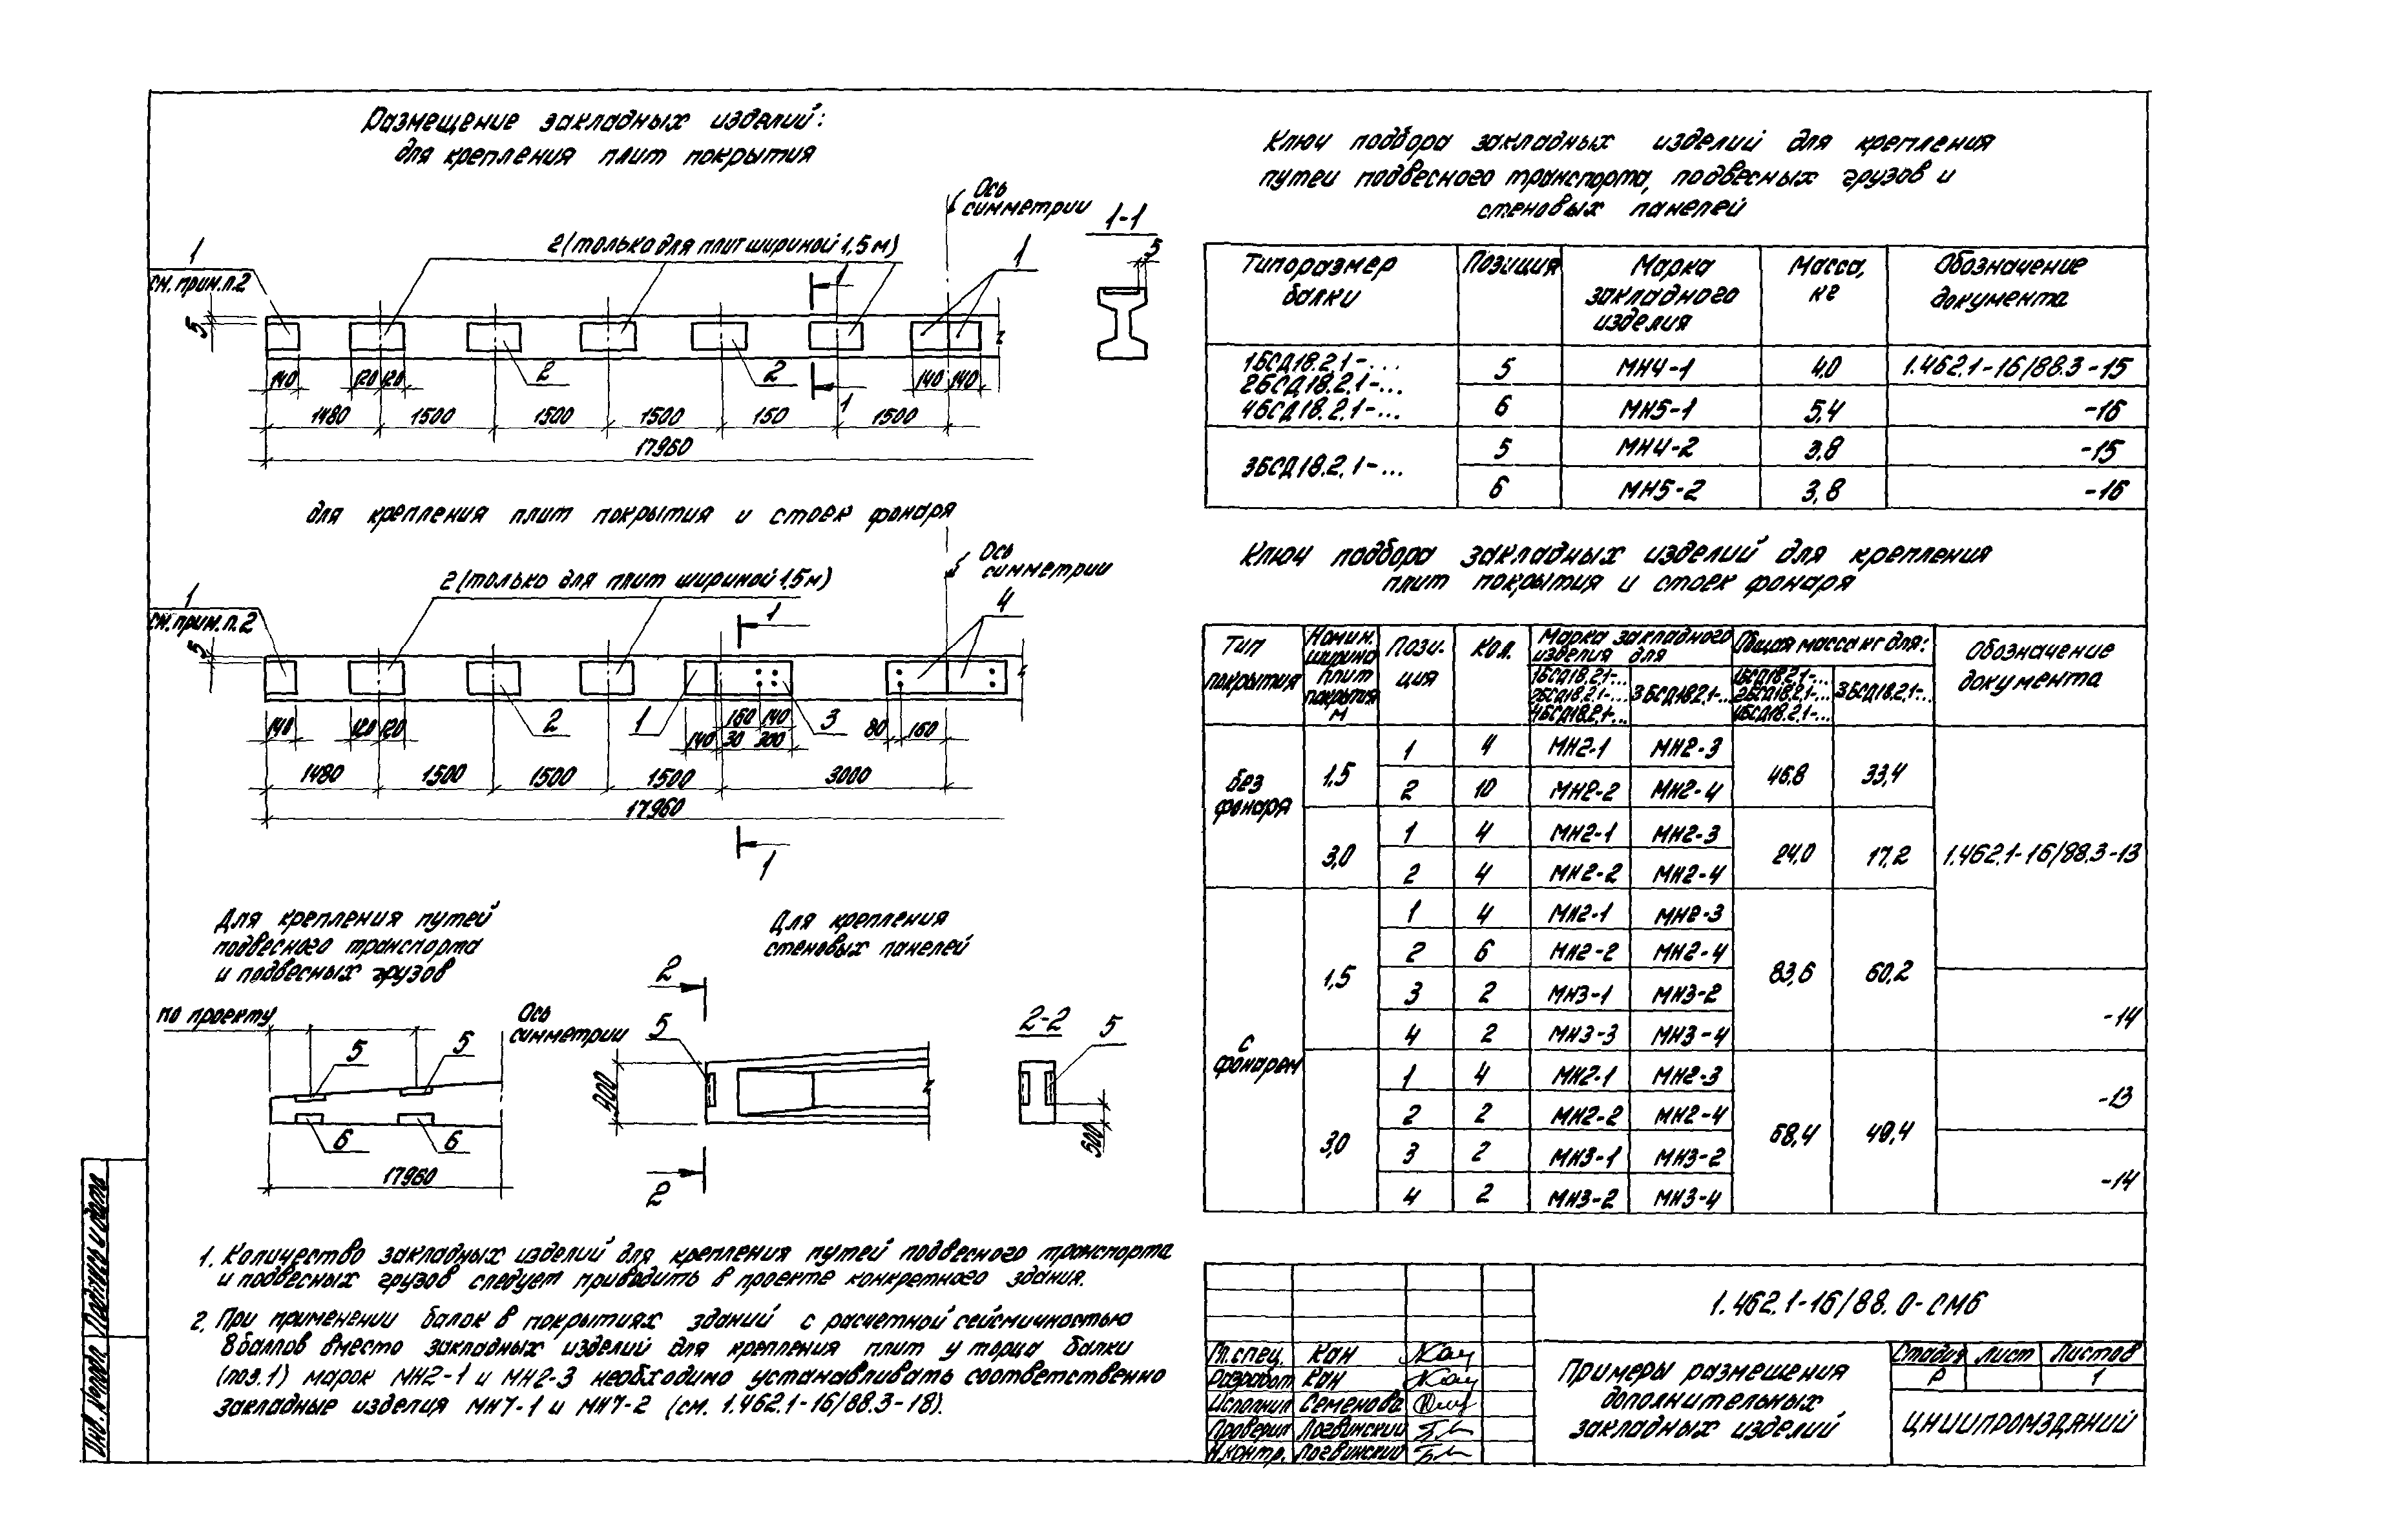 Размещение закладных изделий:
для крепления плит покрытия
Ось
симметрии
1-1
5
1
см. прим. п.2
2 (только для плит шириной 1,5 м)
1
1
5
2
2
1
140
120 120
140 140
1480
1500
1500
1500
150
1500
17960
для крепления плит покрытия и стоек фонаря
Ось
симметрии
1
см. прим. п.2
2 (только для плит шириной 1,5 м)
1
4
5
2
1
3
140
120 120
140
160 140
30 300
80
160
1480
1500
1500
1500
3000
17960
1
Для крепления путей
подвесного транспорта
и подвесных грузов
по проекту
Ось
симметрии
5
5
6
6
17960
Для крепления
стеновых панелей
2
5
900
2
2-2
5
500
1. Количество закладных изделий для крепления путей подвесного транспорта
и подвесных грузов следует приводить в проекте конкретного здания.
2. При применении балок в покрытиях зданий с расчетной сейсмичностью
8 баллов вместо закладных изделий для крепления плит у торца балки
(поз.1) марок МН2-1 и МН2-3 необходимо устанавливать соответственно
закладные изделия МН7-1 и МН7-2 (см. 1.462.1-16/88.3-18).
Ключ подбора закладных изделий для крепления
путеи подвесного транспорта, подвесных грузов и
стеновых панелей
Типоразмер балки
Позиция
Марка закладного изделия
Масса, кг
Обозначение документа
1БСД18.2.1-...
2БСД18.2.1-...
4БСД18.2.1-...
5 МН4-1 4,0 1.462.1-16/88.3-15
6 МН5-1 5,4 -16
3БСД18.2.1-...
5 МН4-2 3,8 -15
6 МН5-2 3,8 -16
Ключ подбора закладных изделий для крепления
плит покрытия и стоек фонаря
Тип покрытия
Номин. ширина плит покрытия м
Пози-
ция
Кол.
Марка закладного изделия для
1БСД18.2.1-...
2БСД18.2.1-...
4БСД18.2.1-...
3БСД18.2.1-...
Общая масса кг для:
1БСД18.2.1-...
2БСД18.2.1-...
4БСД18.2.1-...
3БСД18.2.1-...
Обозначение документа
без фонаря
1,5
1 4 МН2-1 МН2-3
2 10 МН2-2 МН2-4
46,8 33,4
3,0
1 4 МН2-1 МН2-3
2 4 МН2-2 МН2-4
24,0 17,2
1.462.1-16/88.3-13
с фонарем
1,5
1 4 МН2-1 МН2-3
2 6 МН2-2 МН2-4
3 2 МН3-1 МН3-2
4 2 МН3-3 МН3-4
83,6 60,2
-14
3,0
1 4 МН2-1 МН2-3
2 2 МН2-2 МН2-4
3 2 МН3-1 МН3-2
4 2 МН3-2 МН3-4
68,4 49,4
-13
-14
1.462.1-16/88.0-СМ6
Гл.спец. Кан
Разработ. Кан
Исполнил Семенова
Проверил Логвинский
Н.контр. Логвинский
Примеры размещения
дополнительных
закладных изделий
Стадия Лист Листов
Р 1
ЦНИИПРОМЗДАНИЙ
Инв. № подл. Подпись и дата